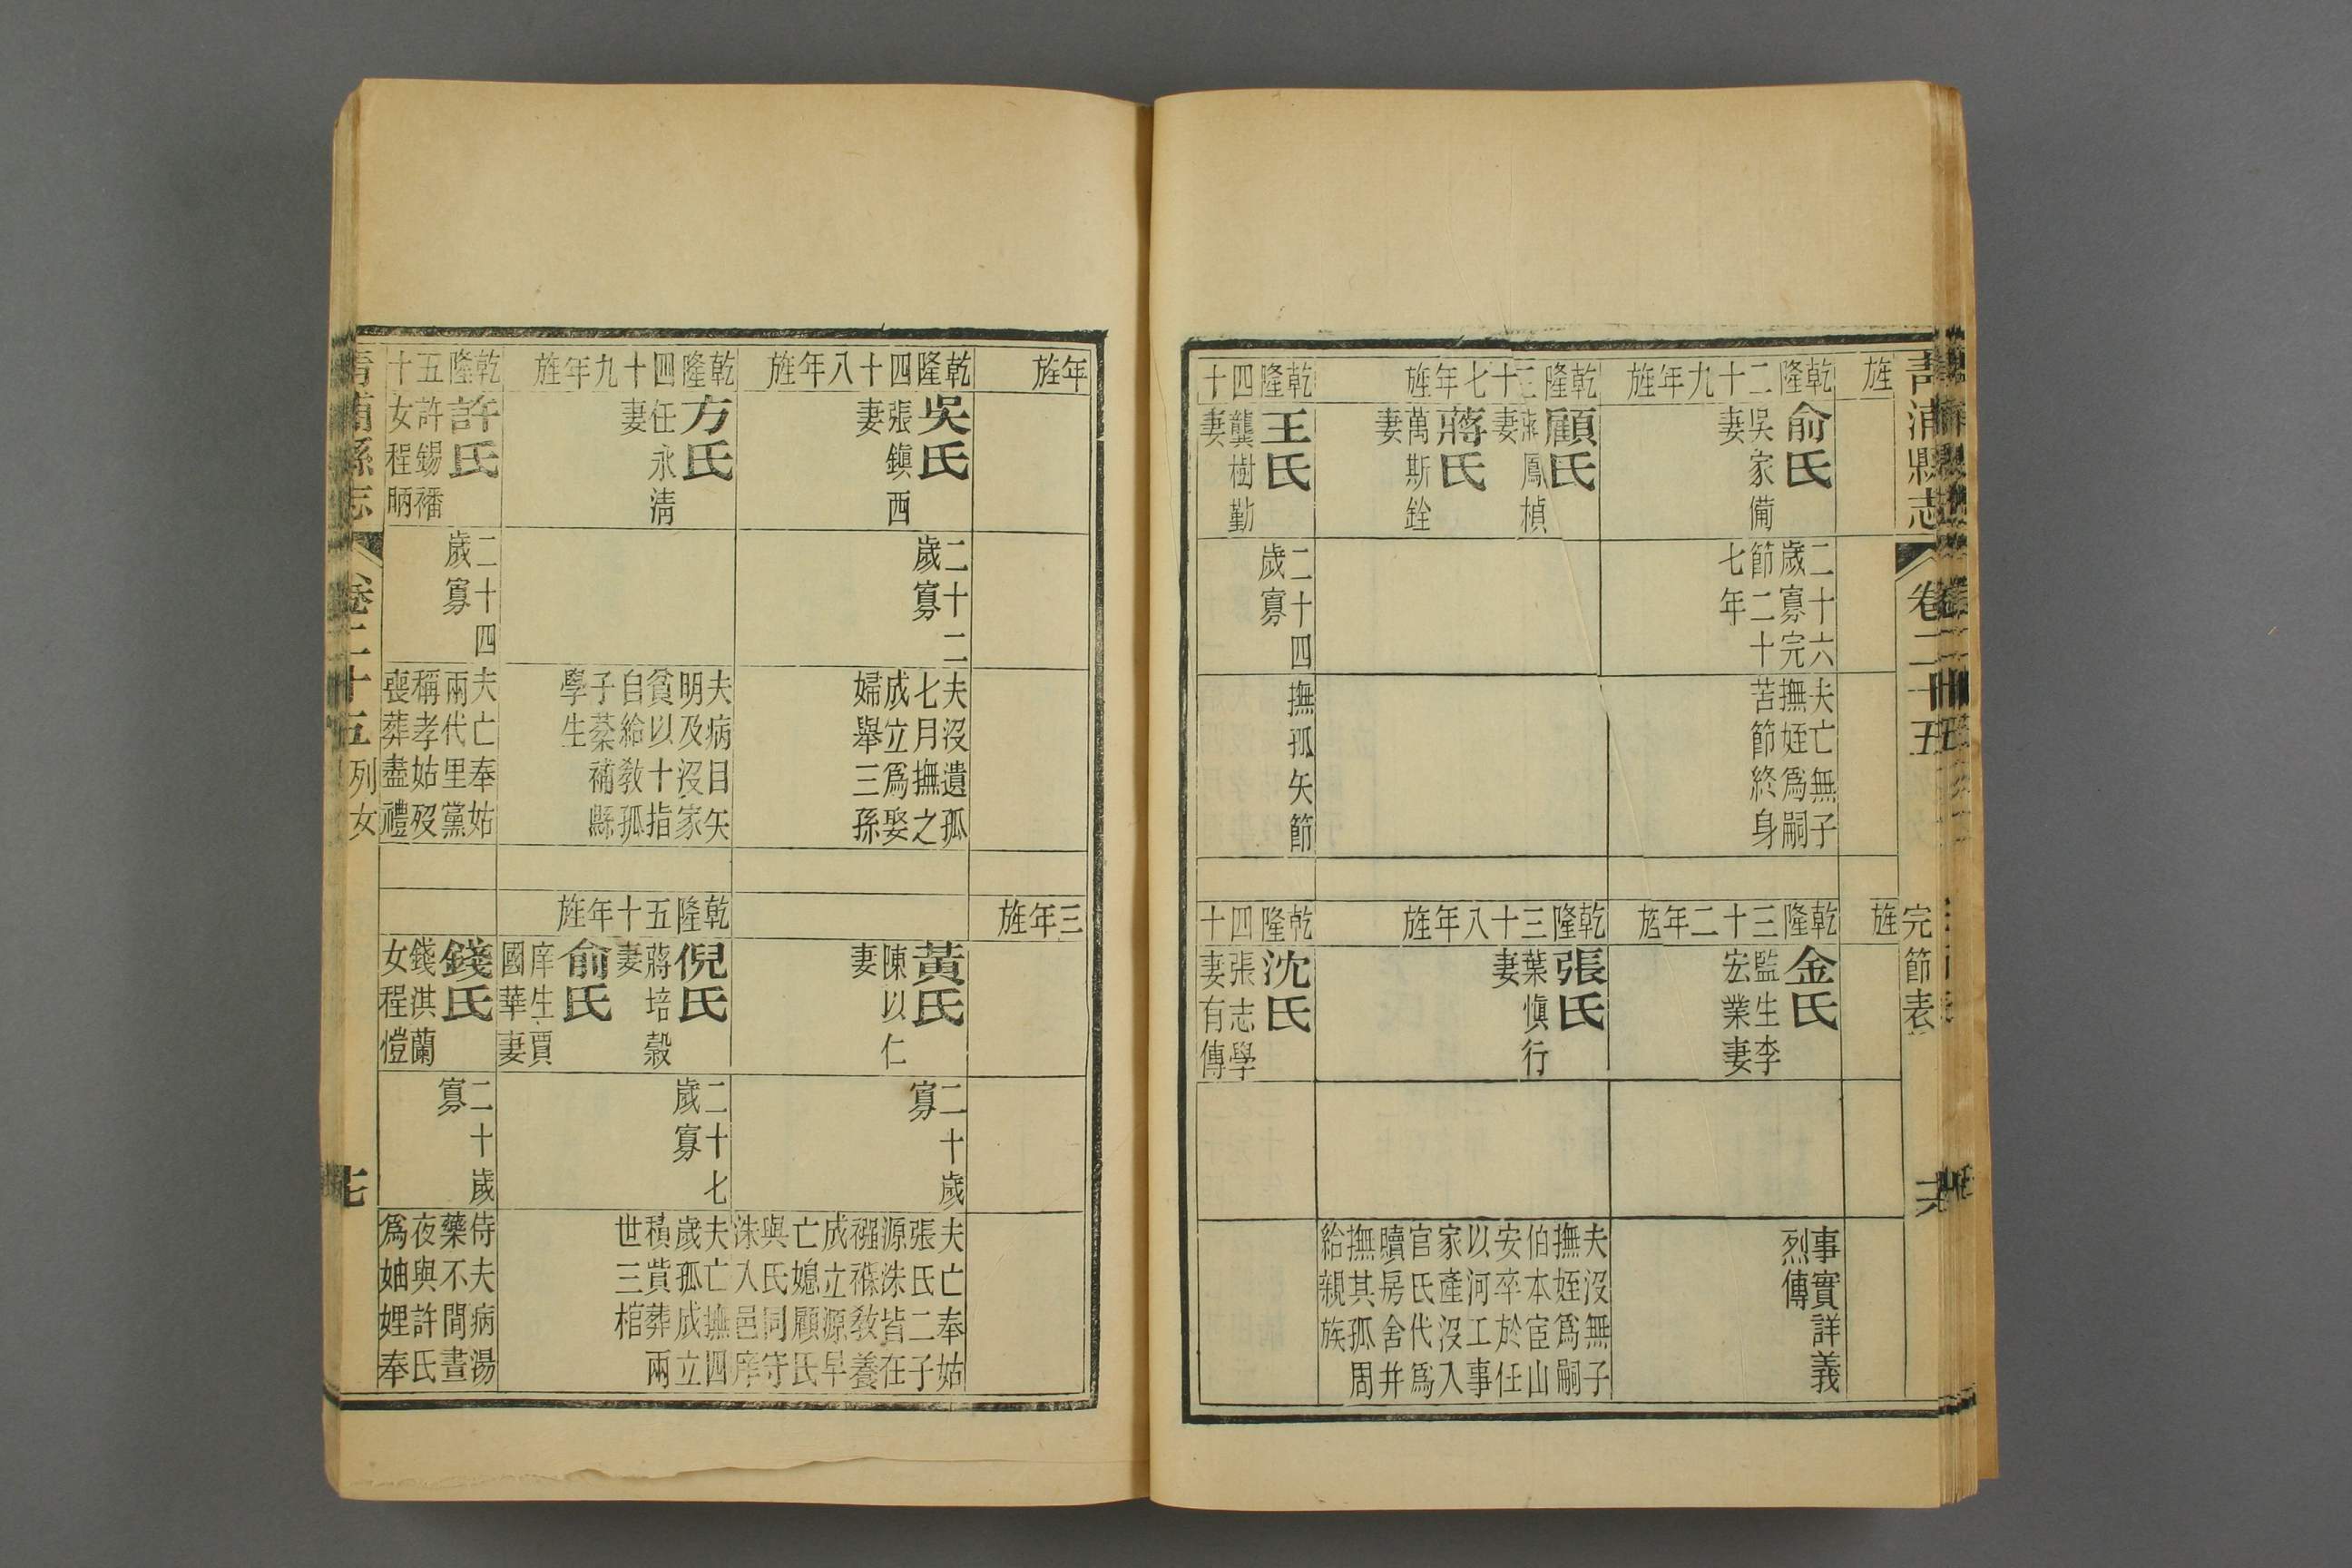 青浦縣志
卷二十五
完節表
六
旌
乾隆二十九年旌
俞氏
吳家備
妻
二十六
歲寡完
節二十
七年
夫亡無子
撫姪爲嗣
苦節終身
乾隆三十七年旌
顧氏
鳳楨
妻
蔣氏
萬斯銓
妻
乾隆四十
王氏
龔樹勤
妻
二十四
歲寡
撫孤矢節
旌
乾隆三十二年旌
金氏
監生李
宏業妻
事實詳義
烈傳
乾隆三十八年旌
張氏
葉愼行
妻
夫沒無子
撫姪爲嗣
伯本宦山
安卒於任
以河工事
家產沒入
官氏代爲
贖房舍幷
撫其孤周
給親族
乾隆四十
沈氏
張志學
妻有傳
年旌
乾隆四十八年旌
吳氏
張鎭西
妻
二十二
歲寡
夫沒遺孤
七月撫之
成立爲娶
婦舉三孫
乾隆四十九年旌
方氏
任永淸
妻
夫病目矢
明及沒家
貧以十指
自給敎孤
子棻補縣
學生
乾隆五十
許氏
許錫襎
女程昞
二十四
歲寡
夫亡奉姑
兩代里黨
稱孝姑歿
喪葬盡禮
三年旌
黃氏
陳以仁
妻
二十歲
寡
夫亡奉姑
張氏二子
源洙皆在
襁褓敎養
成立源早
亡媳顧氏
與氏同守
洙入邑庠
乾隆五十年旌
倪氏
蔣培穀
妻
二十七
歲寡
夫亡撫四
歲孤成立
積貲葬兩
世三棺
俞氏
庠生賈
國華妻
錢氏
錢淇蘭
女程愷
二十歲
寡
侍夫病湯
藥不間晝
夜與許氏
爲妯娌奉
青浦縣志
卷二十五
列女
七